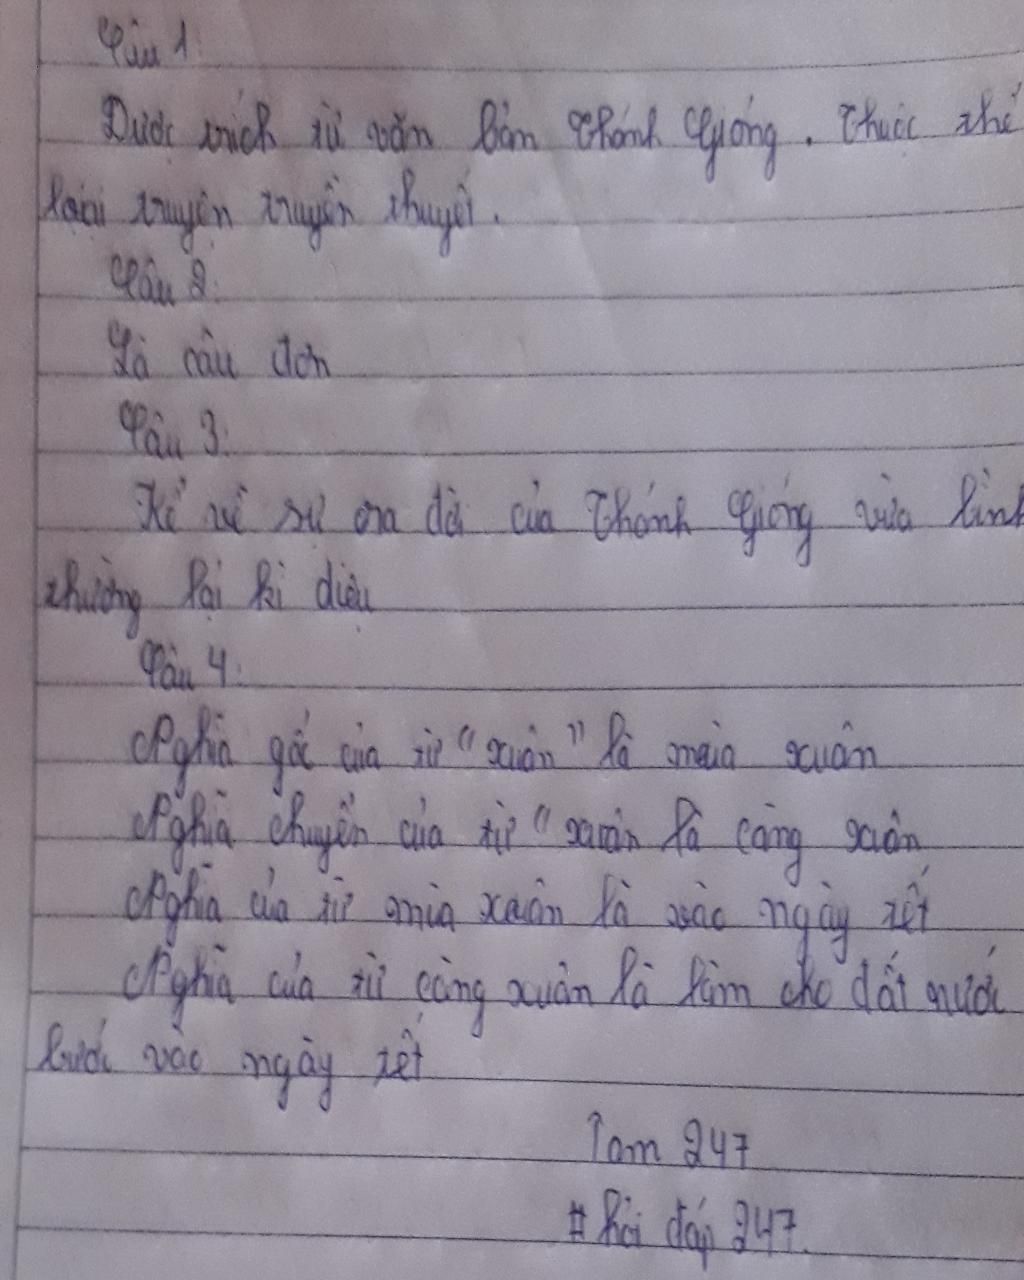 Câu 1:
Được trích từ văn bản Thánh Gióng. Thuộc thể
loại truyện truyền thuyết.
Câu 2:
Là câu đơn
Câu 3:
Kể về sự ra đời của Thánh Gióng vừa bình
thường lại kì diệu
Câu 4:
Nghĩa gốc của từ "xuân" là mùa xuân
Nghĩa chuyển của từ "xuân là càng xuân
Nghĩa của từ mùa xuân là vào ngày tết
Nghĩa của từ càng xuân là làm cho đất nước
bước vào ngày tết
Tam 247
# hỏi đáp 247.